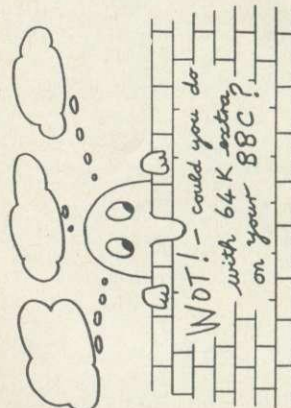 WOT! - could you do
with 64K extra
on your BBC?